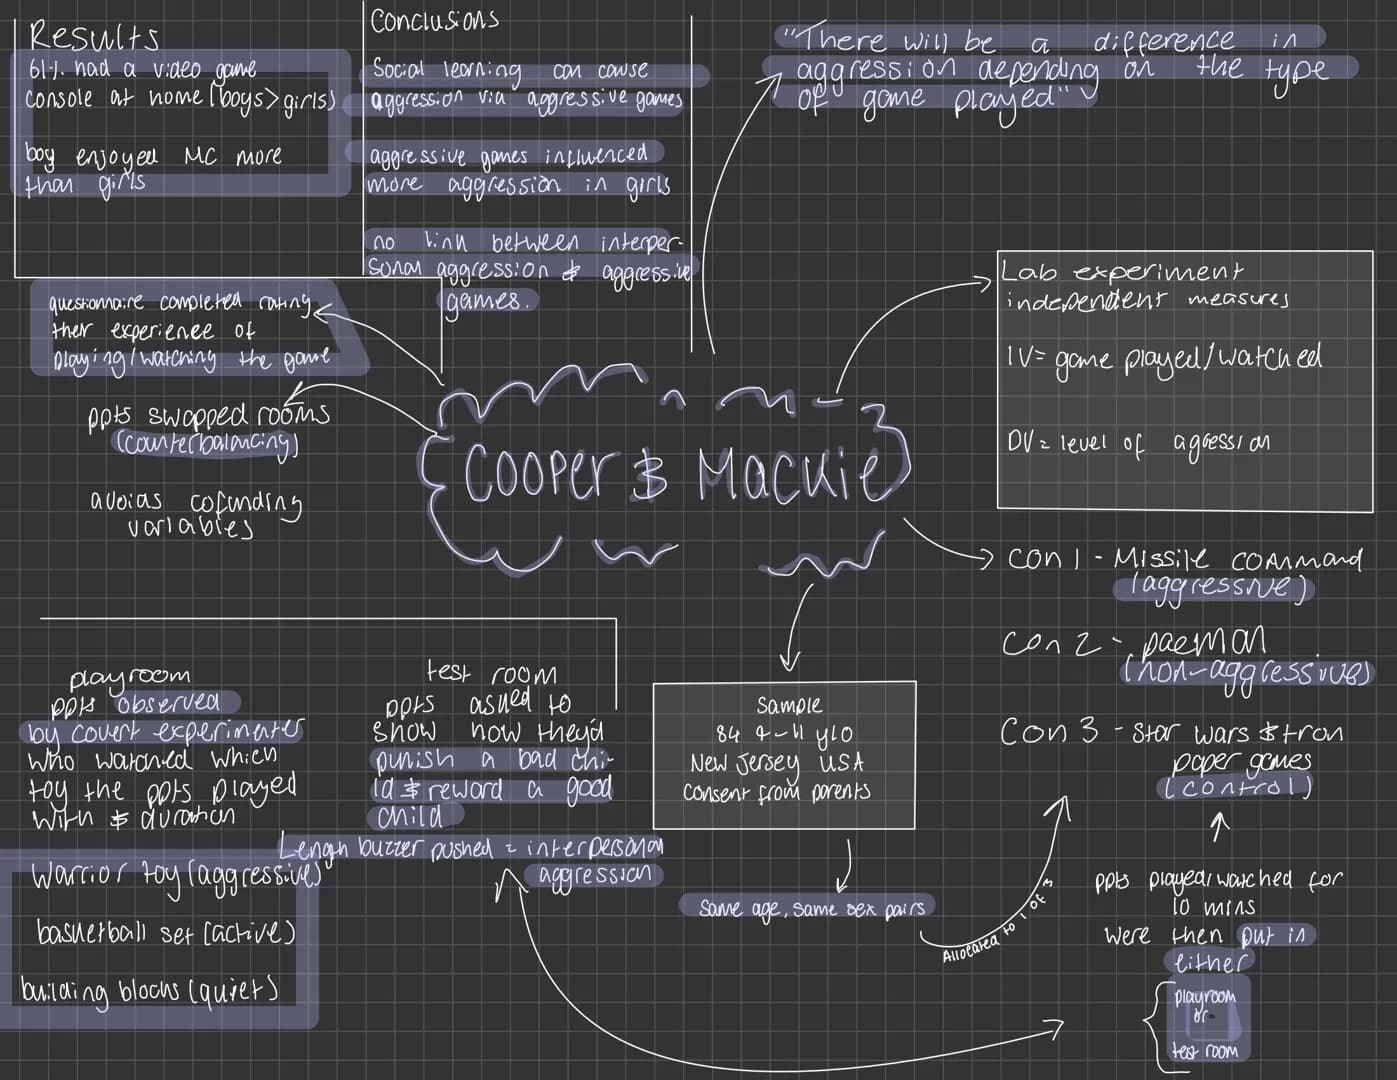 Results
61% had a video game
console at home (boys>girls)
boy enjoyed MC more
than girls
Conclusions
Social learning can cause
aggression via aggressive games
aggressive games influenced
more aggression in girls
no link between interper-
sonal aggression & aggressive
games.
"There will be a difference in
aggression depending on the type
of game played"
questionnaire completed rating
their experience of
playing/watching the game
ppts swapped rooms
(counterbalancing)
avoids cofunding
variables
Cooper & Mackie
Lab experiment
independent measures
IV= game played/watched
DV= level of agression
Con 1 - Missile command
(aggressive)
Con 2 - pacman
(non-aggressive)
Con 3 - Star wars & tron
paper games
(control)
playroom
ppts observed
by covert experimenter
who watched which
toy the ppts played
with & duration
Warrior toy (aggressive)
basketball set (active)
building blocks (quiet)
test room
ppts asked to
show how they'd
punish a bad chi-
ld & reward a good
child
Length buzzer pushed = interpersonal
aggression
Sample
84 9-11 y/o
New Jersey USA
consent from parents
same age, same sex pairs
Allocated to 1 of 3
ppts played/watched for
10 mins
were then put in
either
playroom
or
test room